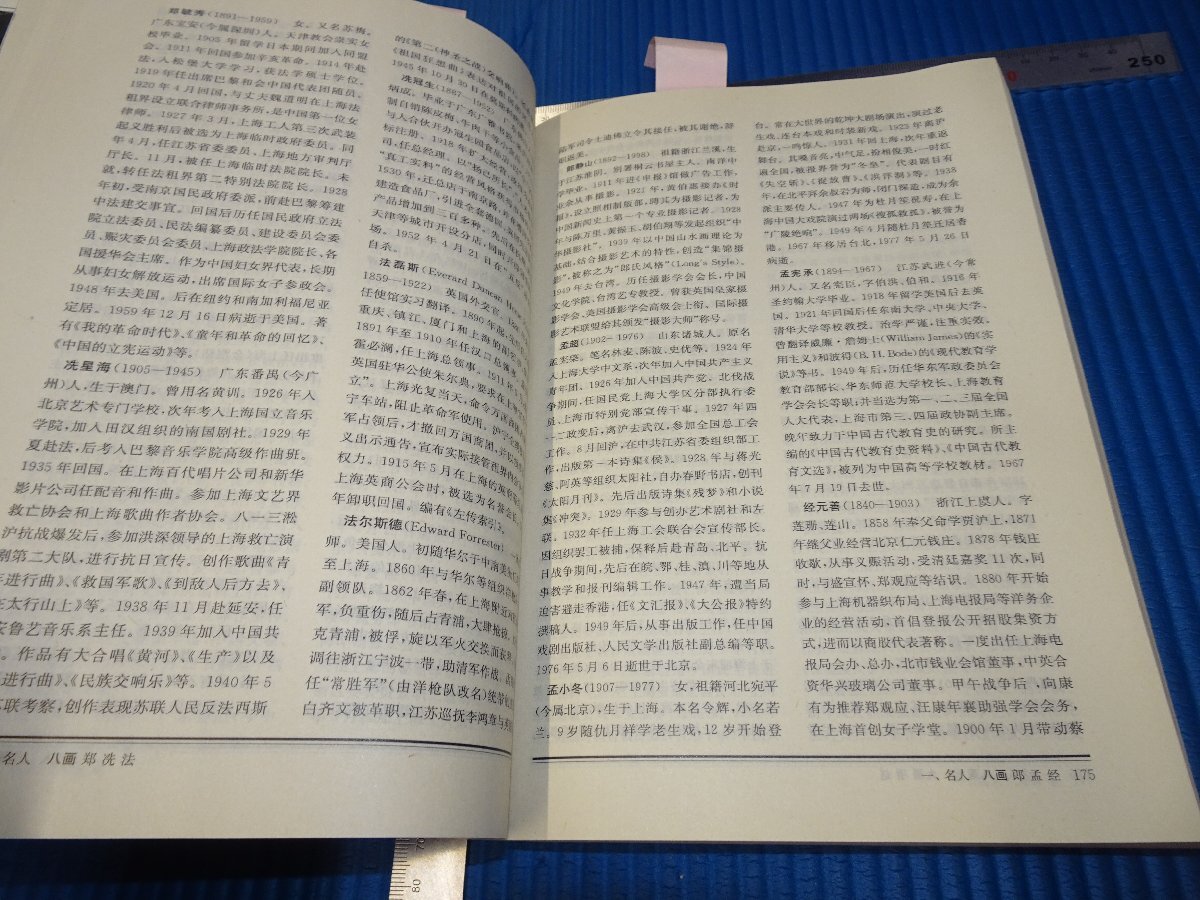 郑毓秀(1891—1959) 女,又名苏梅。
广东宝安(今属深圳)人。天津教会崇实女
校毕业。1905年留学日本期间加入同盟
会。1911年回国参加辛亥革命。1914年赴
法,入松堡大学学习,获法学硕士学位。
1919年任出席巴黎和会中国代表团随员。
1920年4月回国,与丈夫魏道明在上海法
租界设立联合律师事务所,是中国第一位女
律师。1927年3月,上海工人第三次武装
起义胜利后被选为上海临时政府委员。同
年4月,任江苏省委委员、上海地方审判厅
厅长。11月,被任上海临时法院院长。未
就,转任法租界第二特别法院院长。1928
年初,受南京国民政府委派,前赴巴黎筹建
中法建交事宜。回国后历任国民政府立法
院立法委员、民法编纂委员、建设委员会委
员、赈灾委员会委员、上海政法学院院长、各
国援华会主席。作为中国妇女界代表,长期
从事妇女解放运动,出席国际女子参政会。
1948年去美国。后在纽约和南加利福尼亚
定居。1959年12月16日病逝于美国。著
有《我的革命时代》、《童年和革命的回忆》、
《中国的立宪运动》等。
冼星海(1905—1945) 广东番禺(今广
州)人,生于澳门。曾用名黄训。1926年入
北京艺术专门学校,次年考入上海国立音乐
学院,加入田汉组织的南国剧社。1929年
夏赴法,后考入巴黎音乐学院高级作曲班。
1935年回国。在上海百代唱片公司和新华
影片公司任配音和作曲。参加上海文艺界
救亡协会和上海歌曲作者协会。八一三淞
沪抗战爆发后,参加洪深领导的上海救亡演
剧第二大队,进行抗日宣传。创作歌曲《青
进行曲》、《救国军歌》、《到敌人后方去》、
在太行山上》等。1938年11月赴延安,任
鲁艺音乐系主任。1939年加入中国共
。作品有大合唱《黄河》、《生产》以及
进行曲》、《民族交响乐》等。1940年5
联考察,创作表现苏联人民反法西斯
的《第二《神圣之战》交响
《祖国狂想曲》
1945年10月30日在莫斯科
冼冠生(1887—1952)
炳成。毕业于广东
制自销陈皮梅、牛肉干等
与人合伙开办冠生园食品
标注册。1918年扩大经营
司,任总经理。以
“真工实料”的经营风格
1930年,迁总店于南京路
建造食品厂,引进全套
产品增加到二百多种。先后在
天津等城市开设分店,同时开
场。1952年4月21日在
自杀。
法磊斯(Everard Duncan
1859—1922) 英国外交官。
任使馆实习翻译。1890年
重庆、镇江、厦门和上海的
1891年至1910年任汉口总
霍必澜,任上海总领事。1911年
英国驻华公使朱尔典,要求在上海
立”。上海光复当天,命令万国
宁车站,阻止革命军使用。沪宁
军占领后,才撤回万国商团,并
义出示通告,宣布实际接管
权力。1915年5月在上海的
上海英商公会时,被选为名誉会
年卸职回国。编有《左传索引》。
法尔斯德(Edward Forrester)
师。美国人。初随华尔于中
至上海。1860年与华尔等组织
副领队。1862年春,在上海附近
军,负重伤,随后占青浦,大肆抢掠
克青浦,被俘,旋以军火交换
调往浙江宁波一带,助清军作战。
任“常胜军”(由洋枪队改名)统带
白齐文被革职,江苏巡抚李鸿章与
名人 八画 郑 冼 法
陆军司令土迪佛立令其接任,被其谢绝,辞
职返美。
郎静山(1892—1998) 祖籍浙江兰溪,生
于江苏淮阴。别署桐云书屋主人。南洋中
学毕业。1911年进《申报》馆做广告工作,
业余从事摄影。1921年,黄伯惠接办《时
报》,设立照相制版部,聘其为摄影记者,为
中国新闻史上第一个专业摄影记者。1928
年与陈万里、黄振玉、胡伯翔等发起组织“中
华摄影社”。1939年以中国山水画理论为
基础,结合摄影艺术的特性,创造“集锦摄
影”,被称之为“郎氏风格”(Long's Style)。
1949年去台湾。历任摄影学会会长、中国
文化学院、台湾艺专教授。曾获英国皇家摄
影学会、美国摄影学会高级会士衔、国际摄
影艺术联盟给其颁发“摄影大师”称号。
孟超(1902—1976) 山东诸城人。原名
孟宪棨。笔名林麦、陈波、史优等。1924年
入上海大学中文系,次年加入中国共产主义
青年团,1926年加入中国共产党。北伐战
争期间,任国民党上海大学区分部执行委
员、上海市特别党部宣传干事。1927年四
一二政变后,离沪去武汉,参加全国总工会
工作。8月回沪,在中共江苏省委组织部工
作,出版第一本诗集《侯》。1928年与蒋光
慈、阿英等组织太阳社,自办春野书店,创刊
《太阳月刊》。先后出版诗集《残梦》和小说
集《冲突》。1929年参与创办艺术剧社和左
联。1932年任上海工会联合会宣传部长。
因组织罢工被捕,保释后赴青岛、北平。抗
日战争期间,先后在皖、鄂、桂、滇、川等地从
事教学和报刊编辑工作。1947年,遭当局
迫害避走香港,任《文汇报》、《大公报》特约
撰稿人。1949年后,从事出版工作,任中国
戏剧出版社、人民文学出版社副总编等职。
1976年5月6日逝世于北京。
孟小冬(1907—1977) 女,祖籍河北宛平
(今属北京),生于上海。本名令辉,小名若
兰。9岁随仇月祥学老生戏,12岁开始登
台。常在大世界的乾坤大剧场演出,演过老
生戏、连台本戏和时装新戏。1925年离沪
赴京,一鸣惊人。1931年回上海,次年重返
舞台。其嗓音亮,中气足,扮相俊美,一时红
遍全国,被报界誉为“冬皇”。代表剧目有
《失空斩》、《捉放曹》、《洪洋洞》等。1938
年,在北平拜余叔岩为师,闭门探造,成为余
派主要传人。1947年为杜月笙祝寿,在上
海中国大戏院演过两场《搜孤救孤》,被誉为
“广陵绝响”。1949年4月随杜月笙往居香
港。1967年移居台北,1977年5月26日
病逝。
孟宪承(1894—1967) 江苏武进(今常
州)人。又名宪臣,字伯洪、伯和。1916年
圣约翰大学毕业。1918年留学美国后去英
国。1921年回国后任东南大学、中央大学、
清华大学等校教授。治学严谨,注重实效。
曾翻译威廉·詹姆士(William James)的《实
用主义》和彼得(B. H. Bode)的《现代教育学
说》等书。1949年后,历任华东军政委员会
教育部部长、华东师范大学校长、上海教育
学会会长等职,并当选为第一、二、三届全国
人大代表,上海市第三、四届政协副主席。
晚年致力于中国古代教育史的研究。所主
编的《中国古代教育史资料》、《中国古代教
育文选》,被列为中国高等学校教材。1967
年7月19日去世。
经元善(1840—1903) 浙江上虞人。字
莲珊、莲山。1858年奉父命学贾沪上,1871
年继父业经营北京仁元钱庄。1878年钱庄
收歇,从事义赈活动,受清廷嘉奖11次,同
时,与盛宣怀、郑观应等结识。1880年开始
参与上海机器织布局、上海电报局等洋务企
业的经营活动,首倡登报公开招股集资方
式,进而以商股代表著称。一度出任上海电
报局会办、总办,北市钱业会馆董事,中英合
资华兴玻璃公司董事。甲午战争后,向康
有为推荐郑观应、汪康年襄助强学会会务,
在上海首创女子学堂。1900年1月带动察
一、名人 八画 郎 孟 经 175
250
80